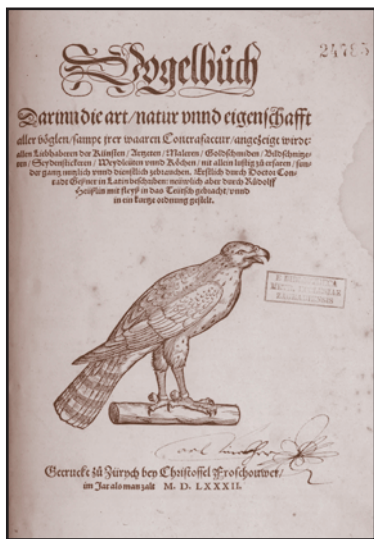 Vogelbůch
24785
Darinn die art/natur vnnd eigenschafft
aller vöglen/sampt jrer waaren Contrafactur/angezeigt wirdt:
allen Liebhaberen der Künsten/Artzeten/Maleren/Goldschmiden/Bildschnitze-
ren/Seydenstickeren/Weydleüten vnnd Köchen/nit allein lustig zů erfaren/sun-
der gantz nutzlich vnnd dienstlich zebrauchen. Erstlich durch Doctor Con-
radt Geßner in Latin beschriben: neüwlich aber durch Růdolff
Heüßlin mit fleyß in das Teütsch gebracht/vnnd
in ein kurtze ordnung gestelt.
Getruckt zů Zürych bey Christoffel Froschouwer/
im Jar als man zalt M. D. LXXXII.